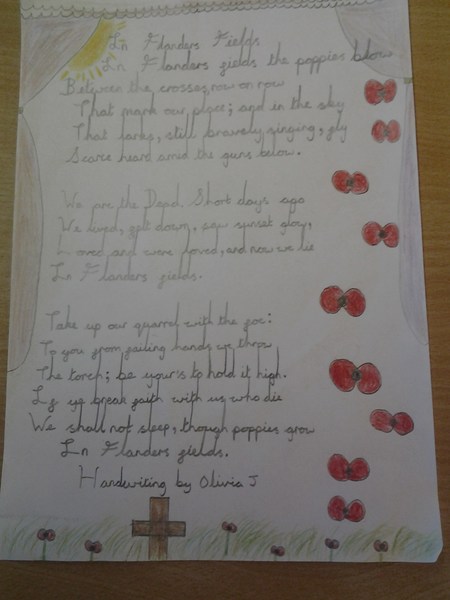 In Flanders Fields
In Flanders fields the poppies blow
Between the crosses, row on row
That mark our place; and in the sky
That larks, still bravely singing, fly
Scarce heard amid the guns below.
We are the Dead. Short days ago
We lived, felt down, saw sunset glow,
Loved and were loved, and now we lie
In Flanders fields.
Take up our quarrel with the foe:
To you from failing hands we throw
The torch; be yours to hold it high.
If ye break faith with us who die
We shall not sleep, though poppies grow
In Flanders fields.
Handwriting by Olivia J